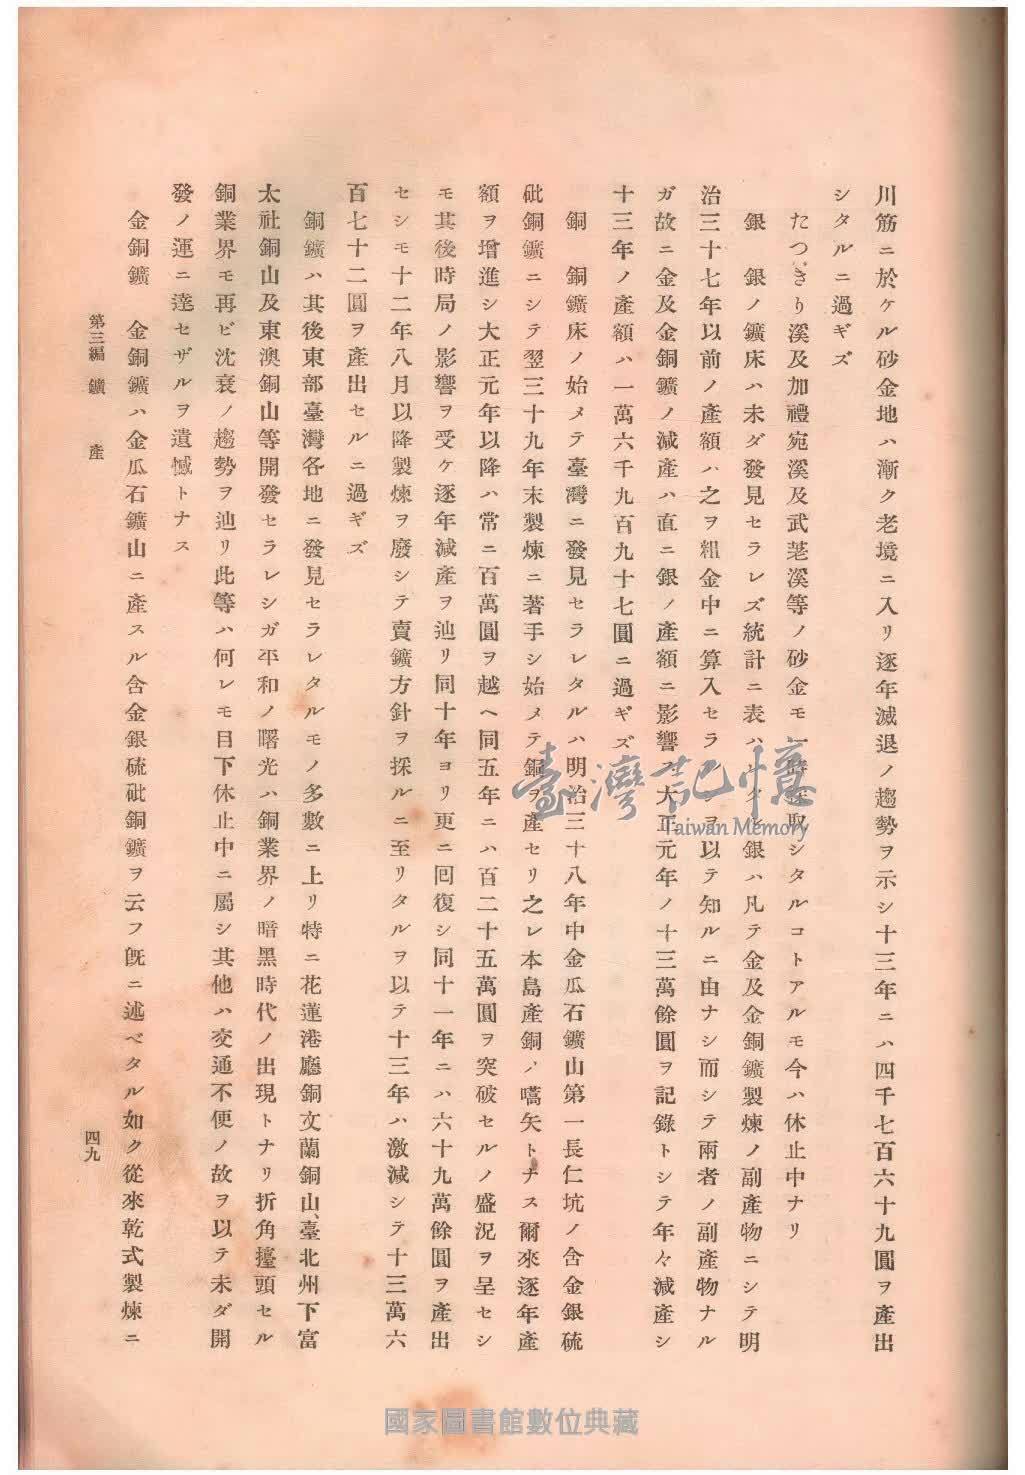 川筋ニ於ケル砂金地ハ漸ク老境ニ入リ逐年減退ノ趨勢ヲ示シ十三年ニハ四千七百六十九圓ヲ產出
シタルニ過ギズ
たつきり溪及加禮宛溪及武荖溪等ノ砂金モ一時採取シタルコトアルモ今ハ休止中ナリ
銀　銀ノ鑛床ハ未ダ發見セラレズ統計ニ表ハレタル銀ハ凡テ金及金銅鑛製煉ノ副產物ニシテ明
治三十七年以前ノ產額ハ之ヲ粗金中ニ算入セラレシヲ以テ知ルニ由ナシ而シテ兩者ノ副產物ナル
ガ故ニ金及金銅鑛ノ減產ハ直ニ銀ノ產額ニ影響ス大正元年ノ十三萬餘圓ヲ記錄トシテ年々減產シ
十三年ノ產額ハ一萬六千九百九十七圓ニ過ギズ
銅　銅鑛床ノ始メテ臺灣ニ發見セラレタルハ明治三十八年中金瓜石鑛山第一長仁坑ノ含金銀硫
砒銅鑛ニシテ翌三十九年末製煉ニ著手シ始メテ銅ヲ產セリ之レ本島產銅ノ嚆矢トナス爾來逐年產
額ヲ增進シ大正元年以降ハ常ニ百萬圓ヲ越ヘ同五年ニハ百二十五萬圓ヲ突破セルノ盛況ヲ呈セシ
モ其後時局ノ影響ヲ受ケ逐年減產ヲ辿リ同十年ヨリ更ニ回復シ同十一年ニハ六十九萬餘圓ヲ產出
セシモ十二年八月以降製煉ヲ廢シテ賣鑛方針ヲ採ルニ至リタルヲ以テ十三年ハ激減シテ十三萬六
百七十二圓ヲ產出セルニ過ギズ
銅鑛ハ其後東部臺灣各地ニ發見セラレタルモノ多數ニ上リ特ニ花蓮港廳銅文蘭銅山、臺北州下富
太社銅山及東澳銅山等開發セラレシガ平和ノ曙光ハ銅業界ノ暗黑時代ノ出現トナリ折角擡頭セル
銅業界モ再ビ沈衰ノ趨勢ヲ辿リ此等ハ何レモ目下休止中ニ屬シ其他ハ交通不便ノ故ヲ以テ未ダ開
發ノ運ニ達セザルヲ遺憾トナス
金銅鑛　金銅鑛ハ金瓜石鑛山ニ產スル含金銀硫砒銅鑛ヲ云フ旣ニ述ベタル如ク從來乾式製煉ニ
第三編　鑛　產
四九
臺灣記憶
Taiwan Memory
國家圖書館數位典藏